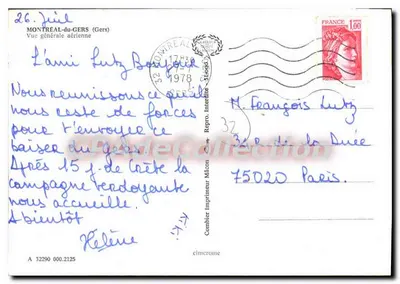 26 Juil
MONTRÉAL-du-GERS (Gers)
Vue générale aérienne
L'ami Lutz Bonjour -
Nous réunissons ce qu'il
nous reste de forces
pour t'envoyer ce
baiser du Gers.
Après 15 j. de Crète la
campagne verdoyante
nous accueille.
A bientôt
Hélène
Kiki
A 32290 000.2125
32 MONTREAL
1978
Combier Imprimeur Mâcon
Repro. Interdite
cim
FRANCE
1,00
M. François Lutz
32
rue de la Duée
75020 Paris.
DelcampeCollection